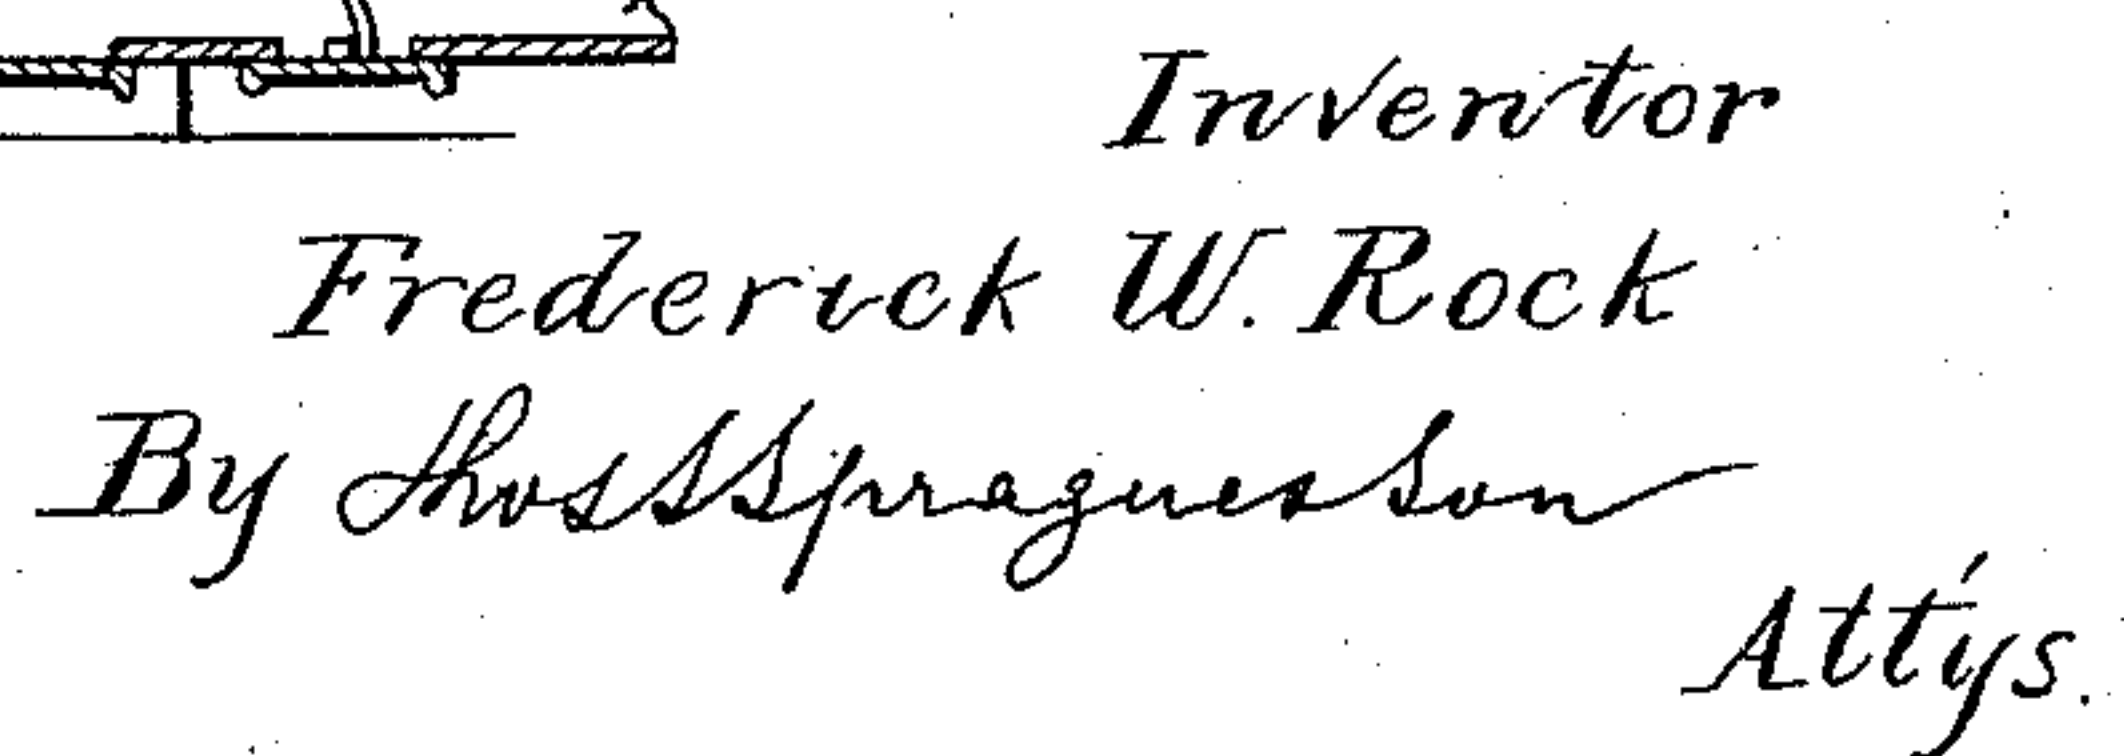 Inventor
Frederick W. Rock
By Thos S Sprague & Son
Att'ys.